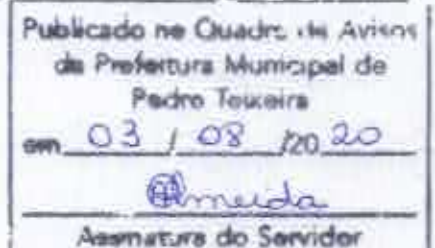 Publicado no Quadro de Avisos
da Prefeitura Municipal de
Pedro Teixeira
em 03 / 08 /20 20
Almeida
Assinatura do Servidor